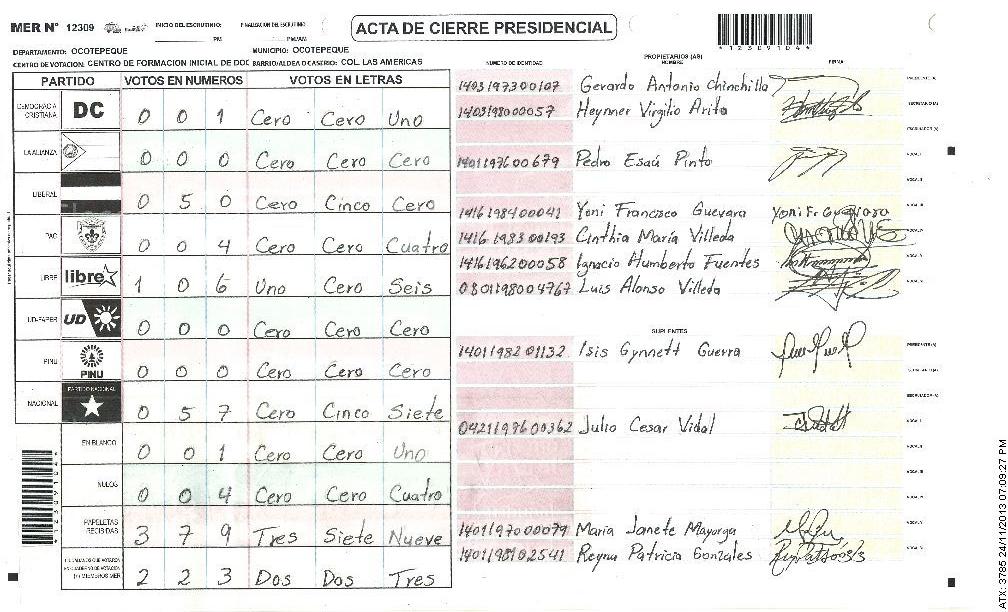 MER N° 12309
INICIO DEL ESCRUTINIO:
PM
FINALIZACION DEL ESCRUTINIO:
PM/AM
ACTA DE CIERRE PRESIDENCIAL
DEPARTAMENTO: OCOTEPEQUE
MUNICIPIO: OCOTEPEQUE
CENTRO DE VOTACION: CENTRO DE FORMACION INICIAL DE DOC BARRIO/ALDEA O CASERIO: COL. LAS AMERICAS
PARTIDO VOTOS EN NUMEROS VOTOS EN LETRAS
DEMOCRACIA CRISTIANA DC 0 0 1 Cero Cero Uno
LA ALIANZA 0 0 0 Cero Cero Cero
LIBERAL 0 5 0 Cero Cinco Cero
PAC 0 0 4 Cero Cero Cuatro
LIBRE libre 1 0 6 Uno Cero Seis
UD-FAPER UD 0 0 0 Cero Cero Cero
PINU PINU 0 0 0 Cero Cero Cero
NACIONAL PARTIDO NACIONAL 0 5 7 Cero Cinco Siete
EN BLANCO 0 0 1 Cero Cero Uno
NULOS 0 0 4 Cero Cero Cuatro
PAPELETAS RECIBIDAS 3 7 9 Tres Siete Nueve
2 2 3 Dos Dos Tres
NUMERO DE IDENTIDAD PROPIETARIOS (AS) NOMBRE FIRMA
1403197300107 Gerardo Antonio Chinchilla PRESIDENTE (A)
1403198000057 Heynner Virgilio Arita SECRETARIO (A)
ESCRUTADOR (A)
1401197600679 Pedro Esaú Pinto VOCAL I
VOCAL II
1416198400041 Yoni Francisco Guevara
1416198300193 Cinthia María Villeda
1416196200058 Ignacio Humberto Fuentes
0801198004767 Luis Alonso Villeda
SUPLENTES
1401198201132 Isis Gynnett Guerra PRESIDENTE (A)
SECRETARIO (A)
ESCRUTADOR (A)
0421197600362 Julio Cesar Vidal VOCAL I
1401197000079 Maria Janete Mayorga
1401198102541 Reyna Patricia Gonzales
ATX: 3785 24/11/2013 07:09:27 PM